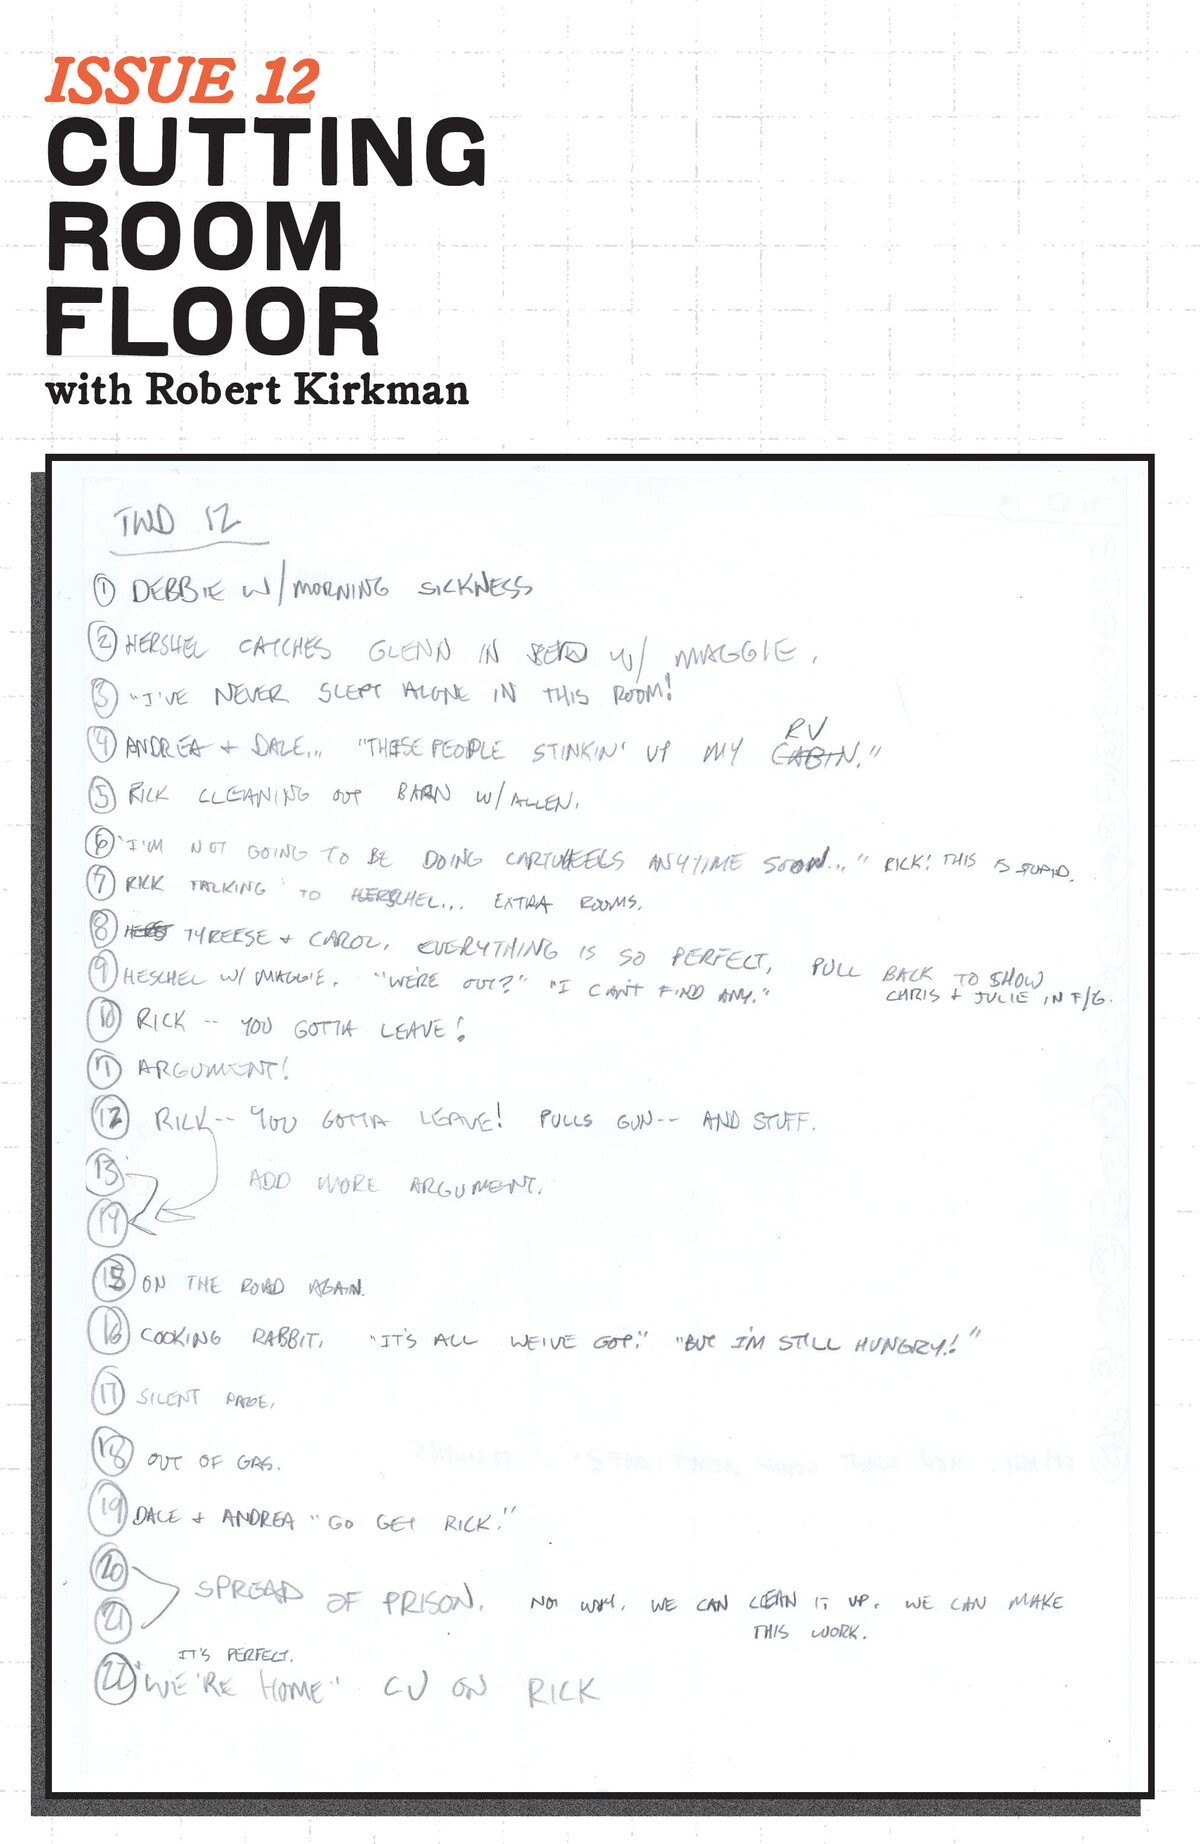 ISSUE 12
CUTTING
ROOM
FLOOR
with Robert Kirkman
TWD 12
1 DEBBIE W/MORNING SICKNESS
2 HERSHEL CATCHES GLENN IN BED W/ MAGGIE.
3 "I'VE NEVER SLEPT ALONE IN THIS ROOM!
RV
4 ANDREA + DALE... "THESE PEOPLE STINKIN' UP MY CABIN."
5 RICK CLEANING OUT BARN W/ALLEN.
6 "I'M NOT GOING TO BE DOING CARTWHEELS ANYTIME SOON..." RICK! THIS IS STUPID.
7 RICK TALKING TO HERSHEL... EXTRA ROOMS.
8 TYREESE + CAROL. EVERYTHING IS SO PERFECT, PULL BACK TO SHOW
CHRIS + JULIE IN F/G.
9 HESCHEL W/ MAGGIE. "WE'RE OUT?" "I CAN'T FIND ANY."
10 RICK -- YOU GOTTA LEAVE!
11 ARGUMENT!
12 RICK -- YOU GOTTA LEAVE! PULLS GUN -- AND STUFF.
13
ADD MORE ARGUMENT.
14
15 ON THE ROAD AGAIN.
16 COOKING RABBIT. "IT'S ALL WE'VE GOT." "BUT I'M STILL HUNGRY!"
17 SILENT PAGE.
18 OUT OF GAS.
19 DALE + ANDREA "GO GET RICK."
20
SPREAD OF PRISON. NO WAY. WE CAN CLEAN IT UP. WE CAN MAKE
THIS WORK.
21
IT'S PERFECT.
22 "WE'RE HOME" CU ON RICK